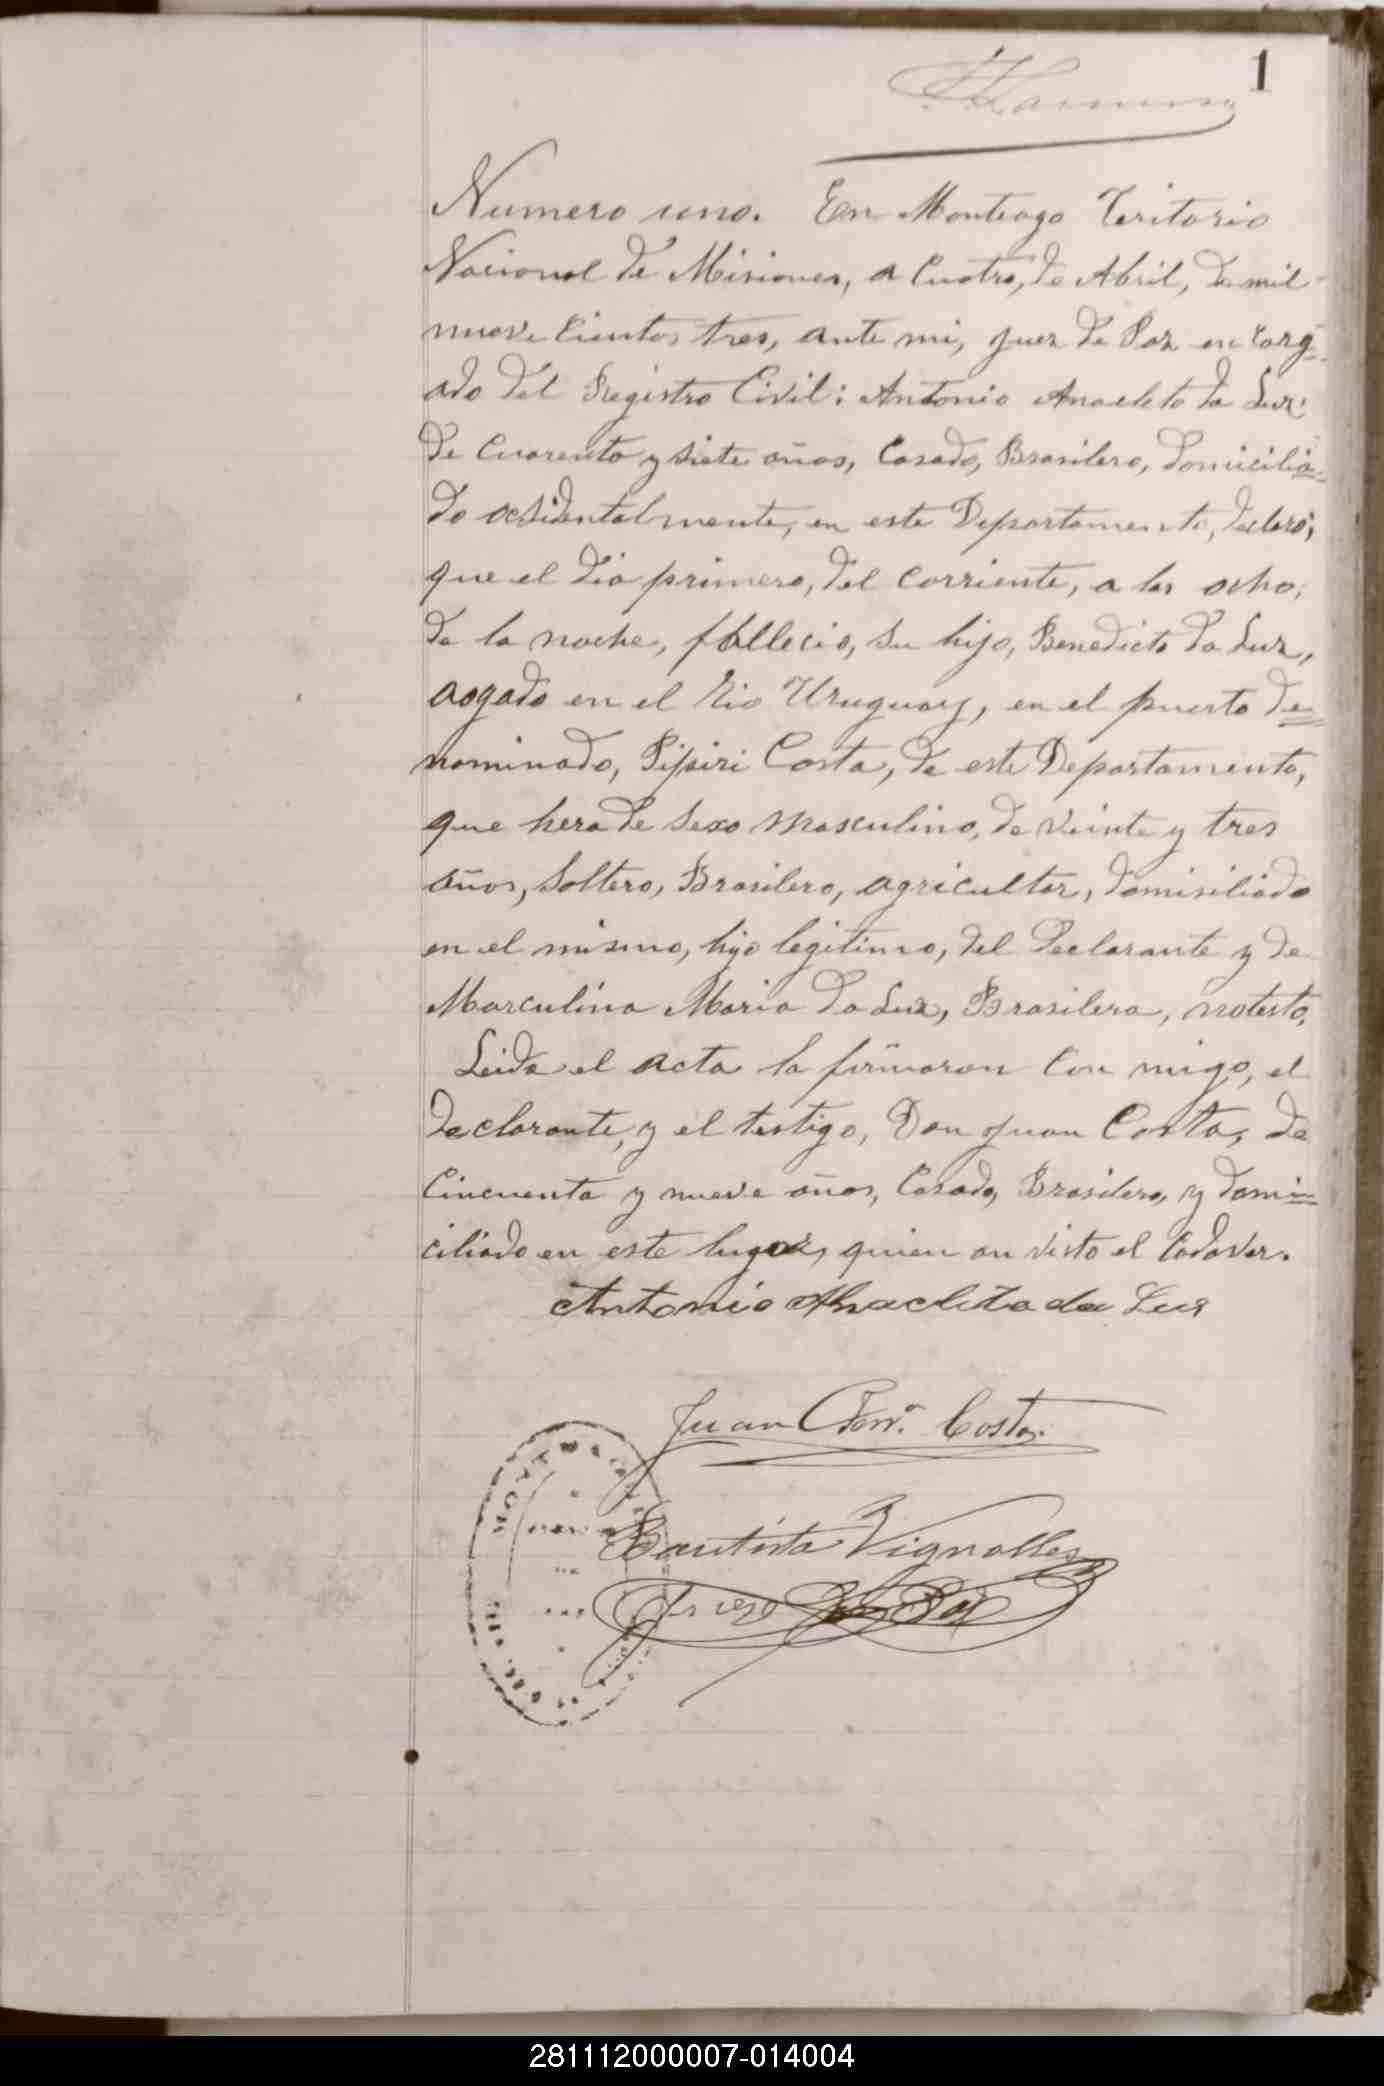 1
Numero uno. En Monteago Teritorio
Nacional de Misiones, a Cuatro, de Abril, de mil
nueve Cientos tres, ante mi, Juez de Paz en carg-
ado del Registro Civil: Antonio Anacleto da Luz:
de Cuarenta y siete años, Casado, Brasilero, domicilia-
do acsidentalmente, en este Departamento, declaró;
que el dia primero, del corriente, a las ocho,
de la noche, fallecio, su hijo, Benedicto da Luz,
aogado en el Rio Uruguay, en el puerto de=
nominado, Pipiri Costa, de este Departamento,
que hera de Sexo Masculino, de veinte y tres
años, Soltero, Brasilero, agricultor, domisiliado
en el mismo, hijo legitimo, del Declarante y de
Marculina Maria da Luz, Brasilera, no testo.
Leida el acta la firmaron con migo, el
declarante, y el testigo, Don Juan Costa, de
Cincuenta y nueve años, Casado, Brasilero, y domi=
ciliado en este lugar, quien an visto el Cadaver.
Antonio Anacleto da Luz
Juan Costa.
Bautista Vignolles
Juez Paz
281112000007-014004